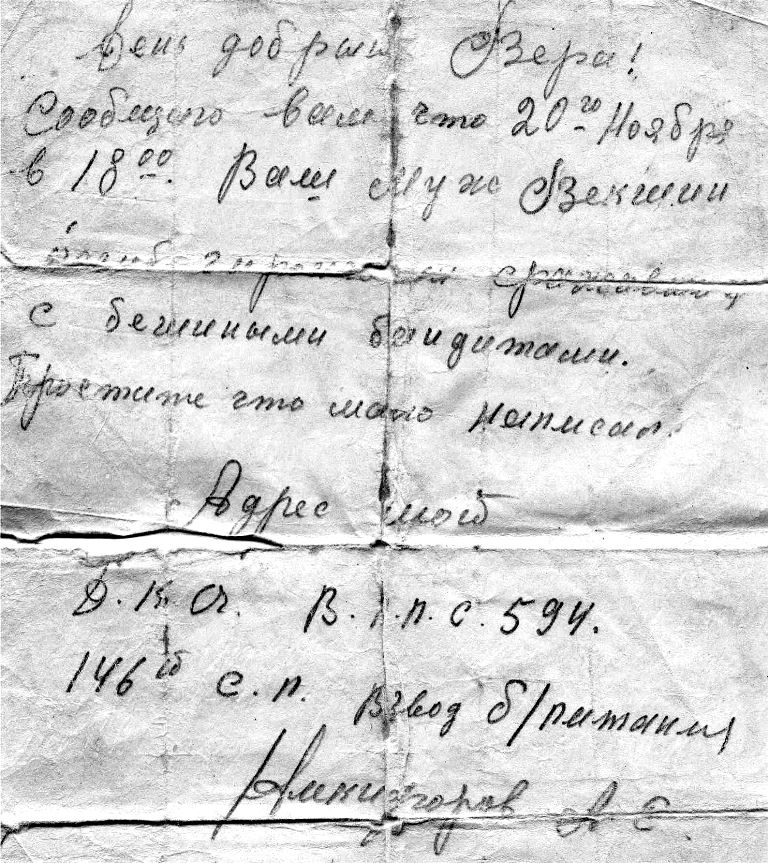 День добрый Вера!
Сообщаю вам что 20го Ноября
в 1800. Ваш муж Векшин
погиб
с бешиными бандитами.
Простите что мало написал.
Адрес мой
Д.К.А. В.п.с. 594.
146й с.п. Взвод б/питания
А С.